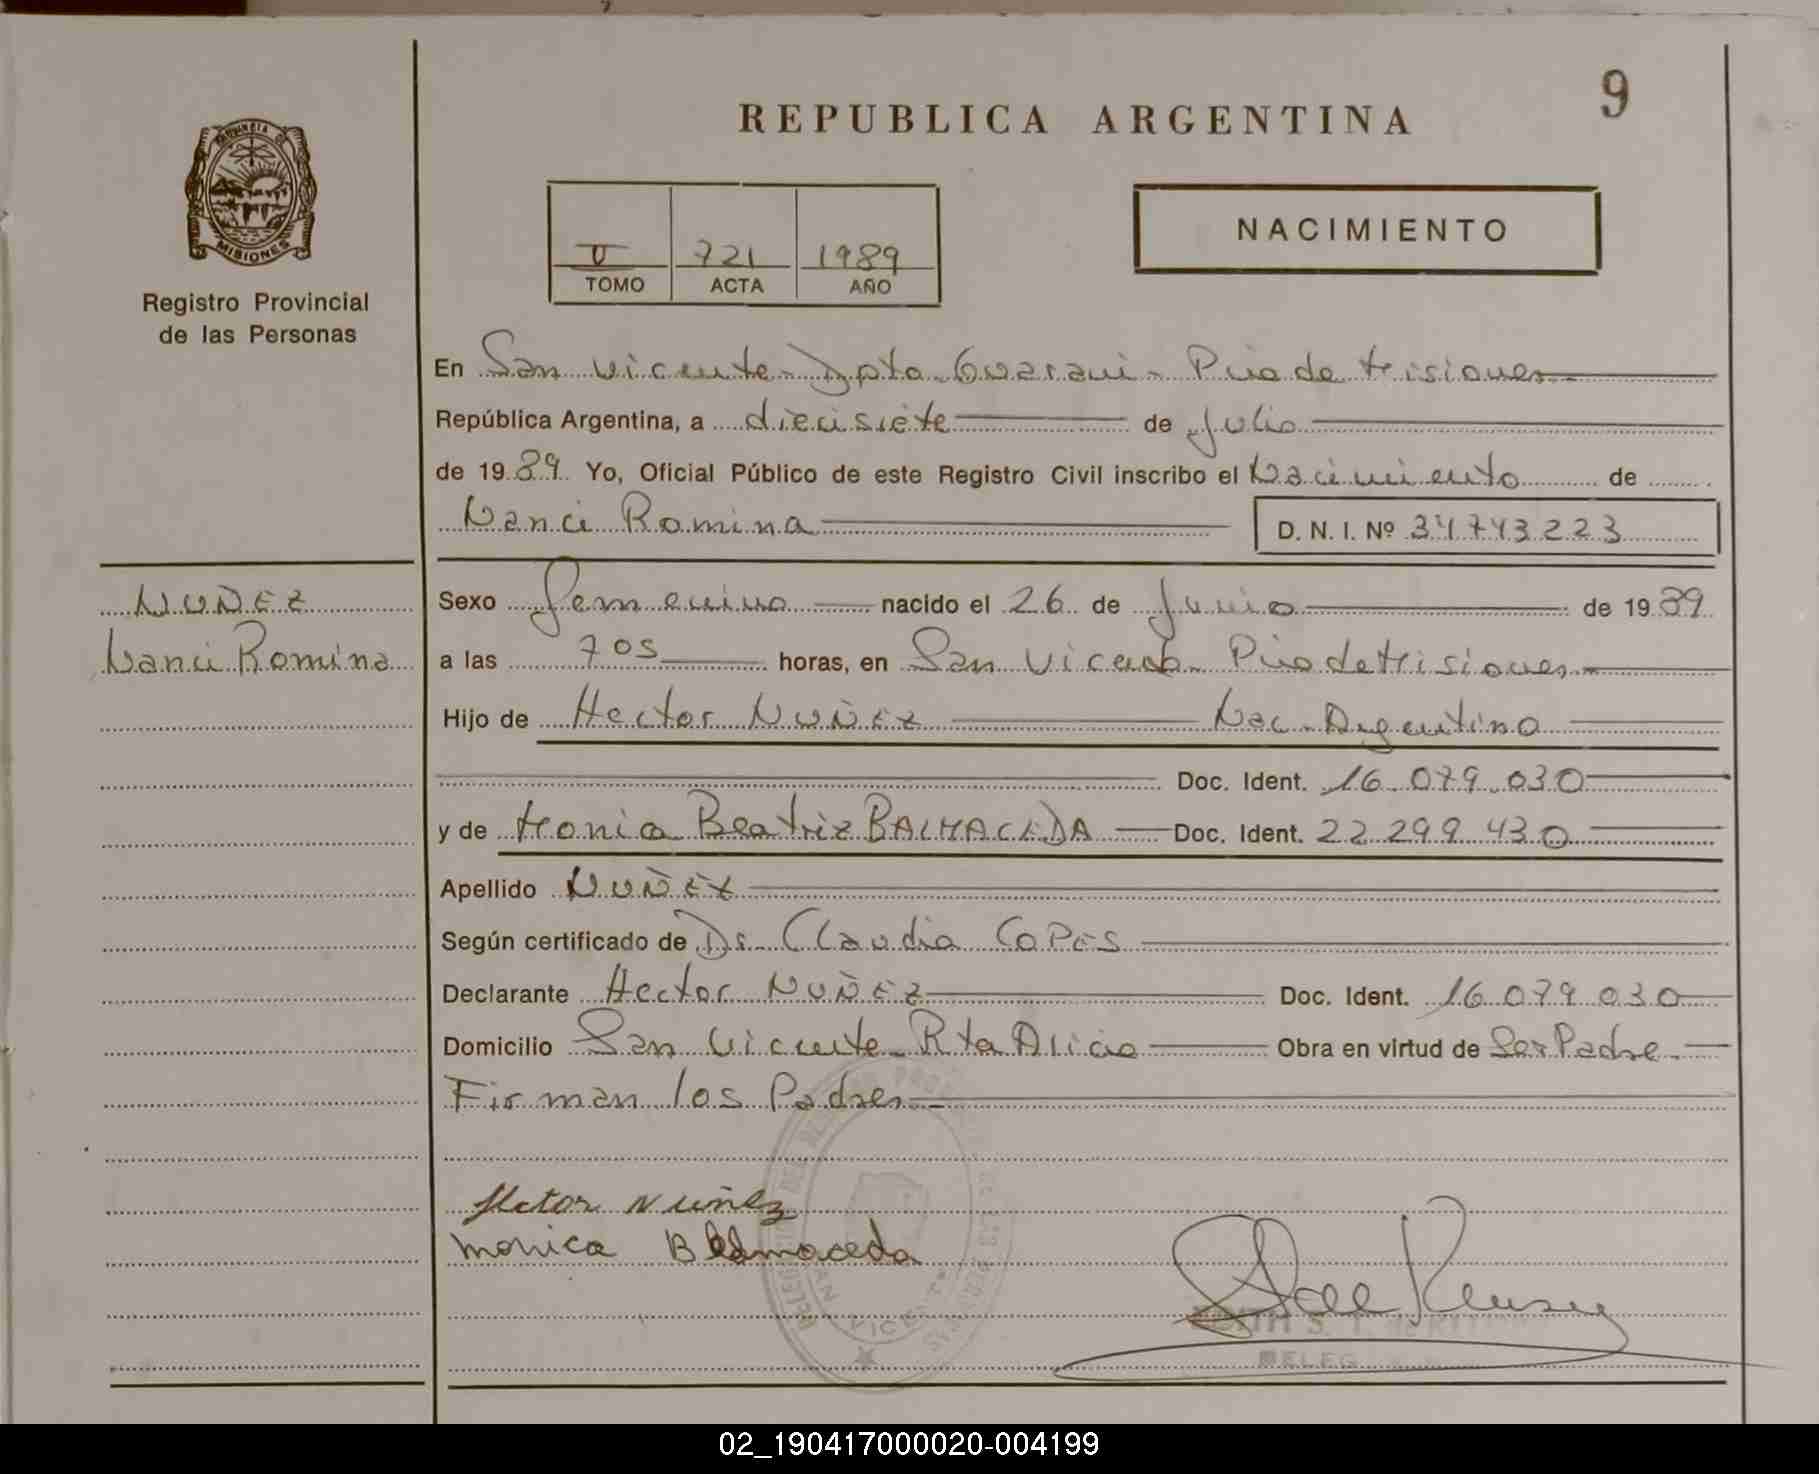 9
REPUBLICA ARGENTINA
PROVINCIA DE
MISIONES
Registro Provincial
de las Personas
V 721 1989
TOMO ACTA AÑO
NACIMIENTO
En San Vicente - Dpto. Guarani - Pcia de Misiones
República Argentina, a diecisiete de Julio
de 19 89 Yo, Oficial Público de este Registro Civil inscribo el Nacimiento de
Nanci Romina D. N. I. Nº 34743223
NUÑEZ
Nanci Romina
Sexo femenino nacido el 26 de Junio de 19 89
a las 7 05 horas, en San Vicente Pcia de Misiones
Hijo de Hector NUÑEZ Nac. Argentino
Doc. Ident. 16.079.030
y de Monica Beatriz BALMACEDA Doc. Ident. 22.299.430
Apellido NUÑEZ
Según certificado de Dr. Claudia COPES
Declarante Hector NUÑEZ Doc. Ident. 16.079.030
Domicilio San Vicente - Rta Alicia Obra en virtud de Ser Padre
Firman los Padres
Hector Nuñez
Monica Balmaceda
SAN VICENTE
S. T. de
DELEG
02_190417000020-004199